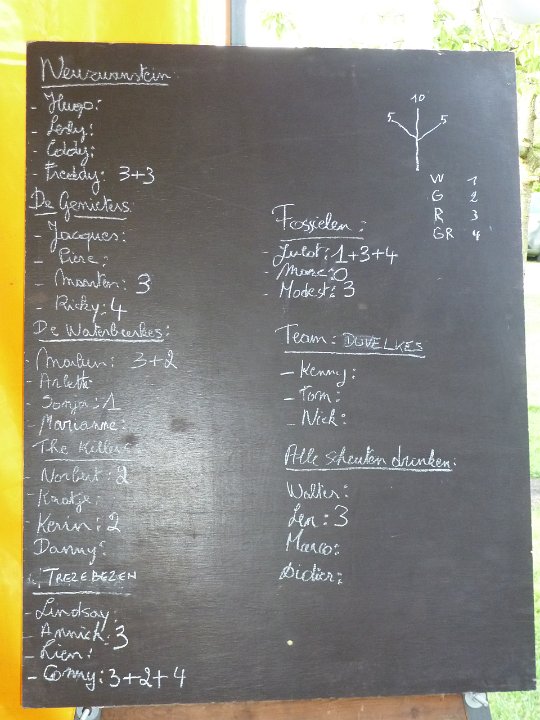 - Hugo:
- Freddy: 3+3
De Genieters:
- Jacques:
- Piere:
- Maarten: 3
- Ricky: 4
De Waterbeerkes:
3+2
- Arlette
- Sonja: 1
- Marianne:
The Killers:
- Norbert: 2
- Kratje:
- Kevin: 2
Danny:
TREZEBEZEN
- Lindsay:
- Annick: 3
- Lien:
- Conny: 3+2+4
10
5 5
W 1
G 2
R 3
GR 4
Fossielen:
1+3+4
- Marc: 0
- Modest: 3
Team: DUVELKES
- Kenny:
- Tom:
- Nick:
Alle scheuten drinken:
Walter:
Len: 3
Marco:
Didier: